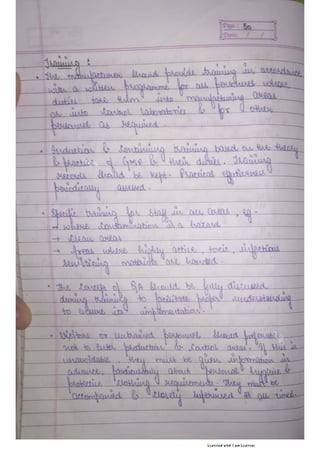 Page: 30
Date: / /
Training :
• The manufacturer should provide training in accordance
with a written programme for all personnel whose
duties take them into manufacturing areas
or into control laboratories & for other
personnel as required.
• Induction & continuing training based on the theory
& practice of GMP & their duties. Training
records should be kept. Practical effectiveness
periodically assessed.
• Specific training for staff in all areas, eg -
→ where contamination is a hazard
→ clean areas
→ Areas where highly active, toxic, infectious
sensitizing materials are handled.
• The concept of QA should be fully discussed
during training to facilitate proper understanding
to ensure its implementation.
• Visitors or untrained personnel should preferably
not to enter production & control areas. If this is
unavoidable, they must be given information in
advance, particularly about personal hygiene &
protective clothing requirements. They must be
accompanied & closely supervised at all times.
Scanned with CamScanner